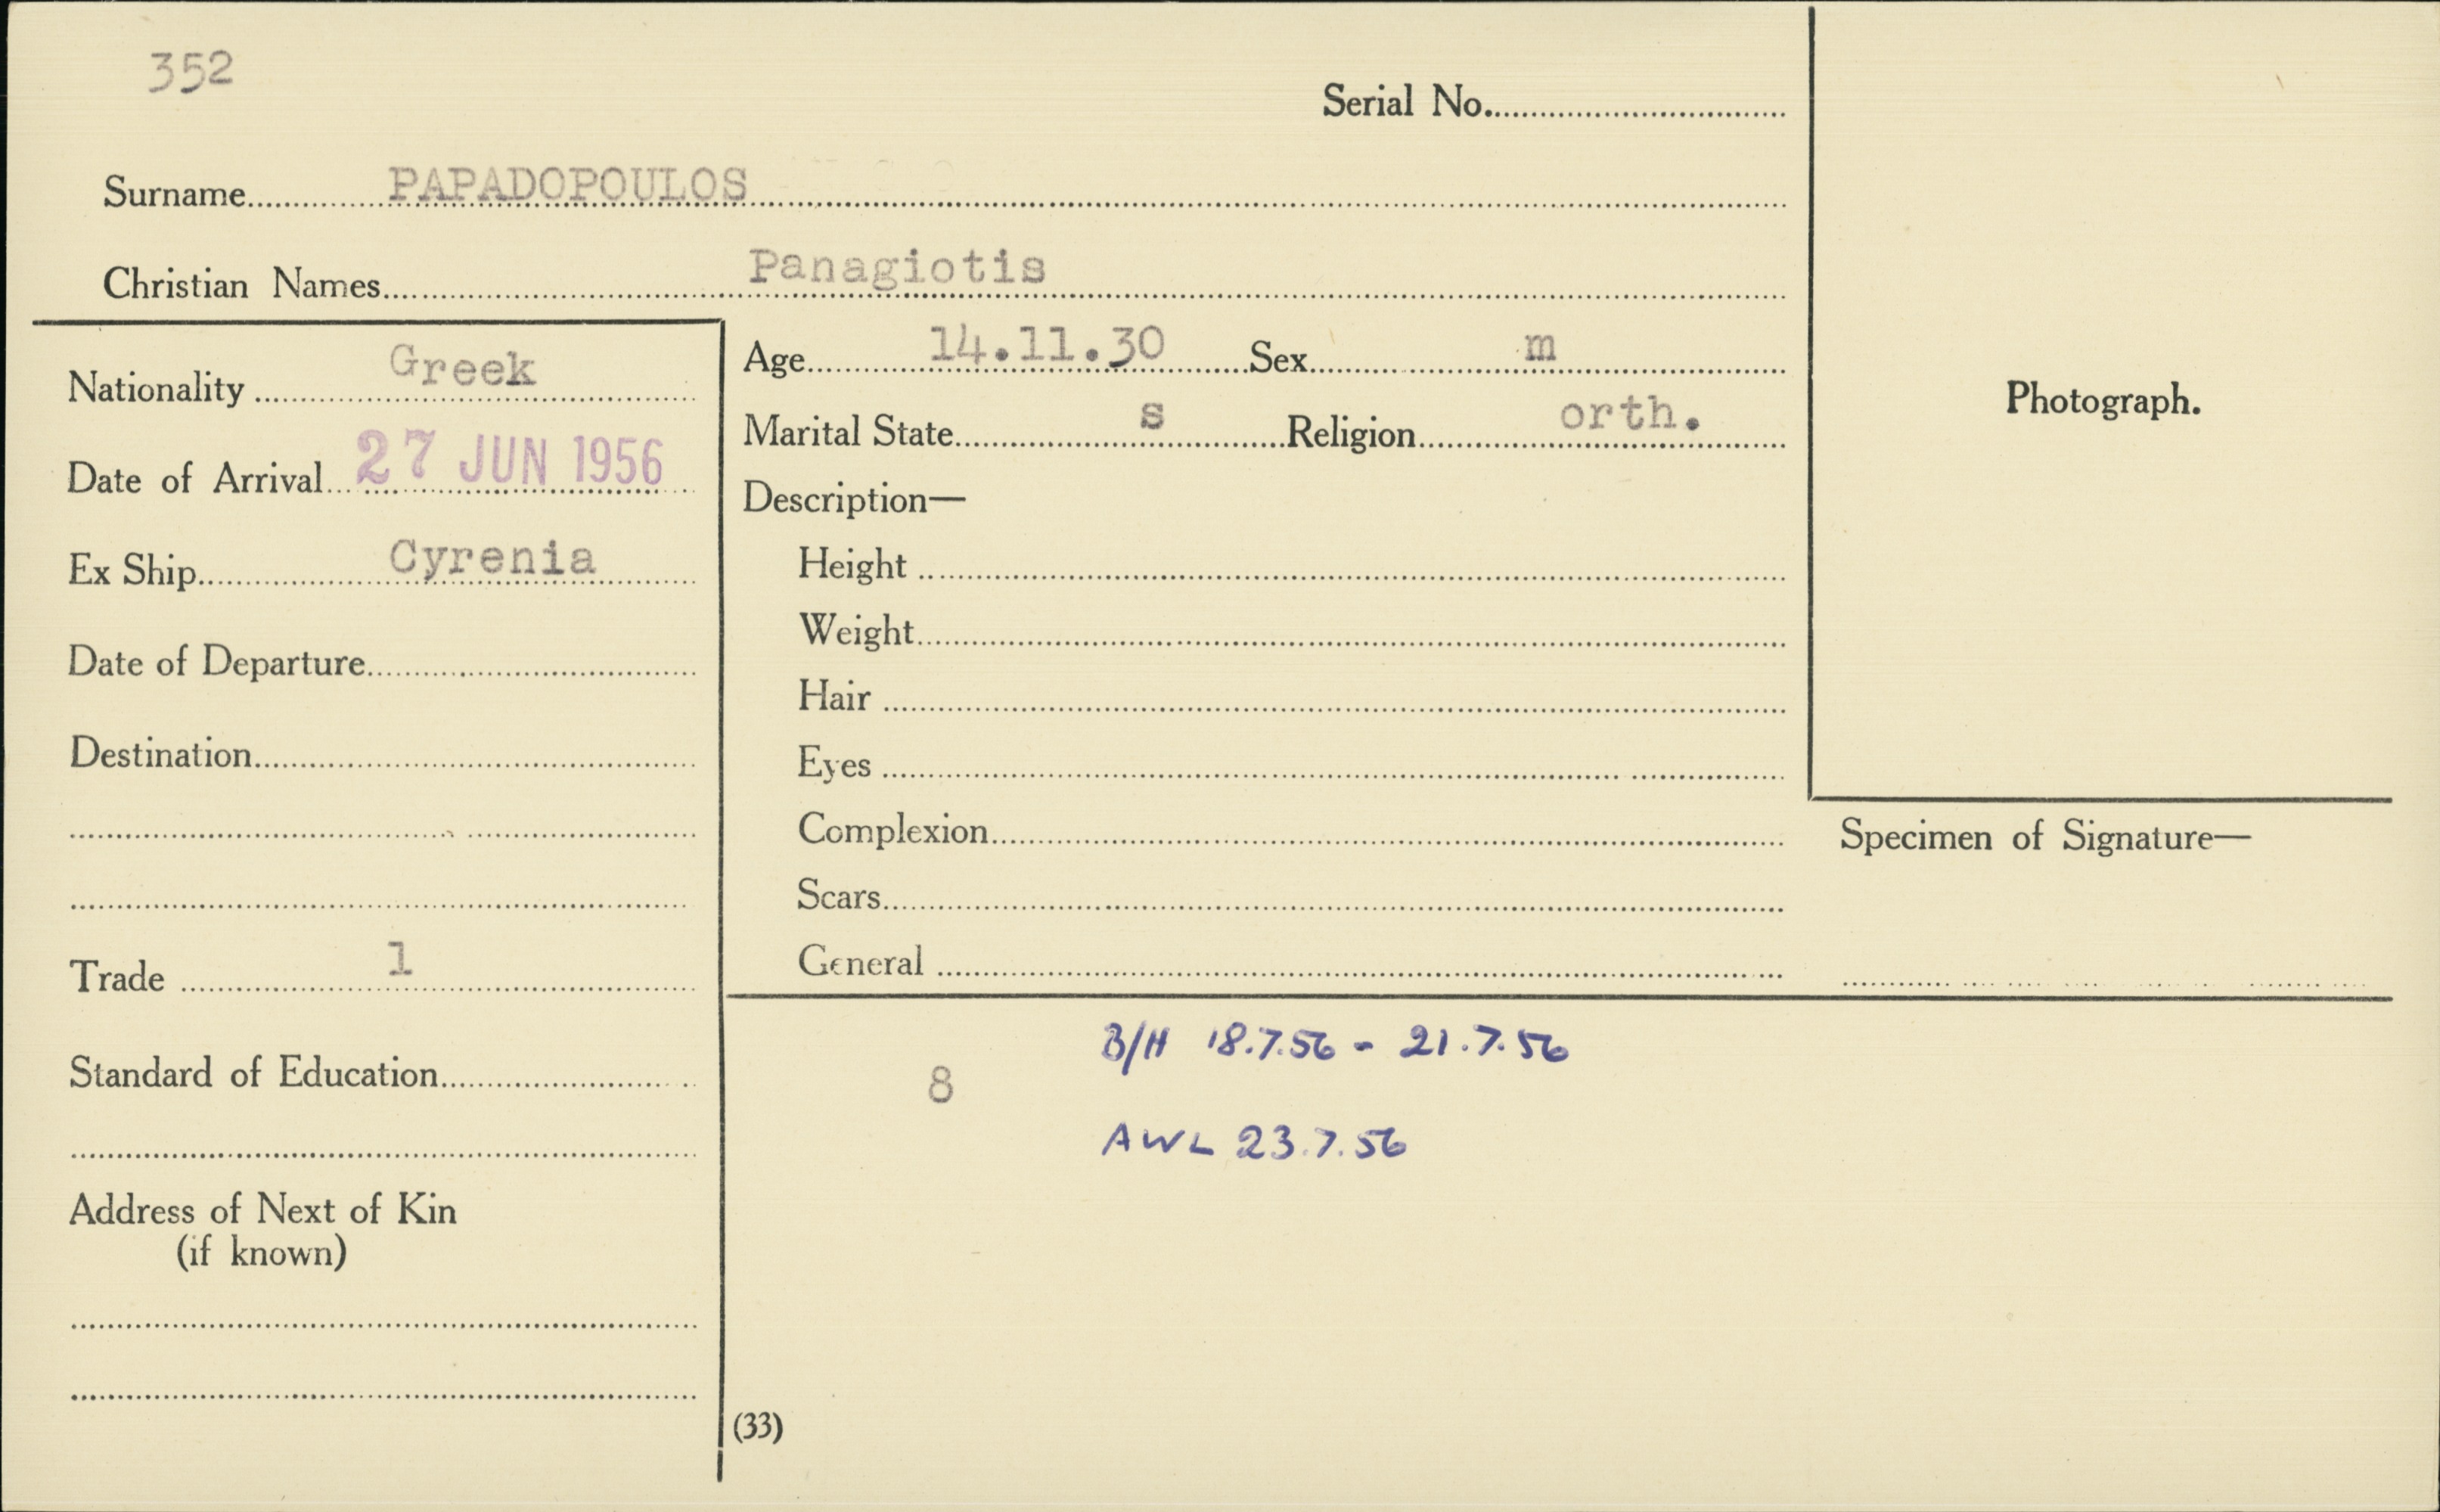 352
Serial No.
Surname PAPADOPOULOS
Christian Names Panagiotis
Nationality Greek
Date of Arrival 27 JUN 1956
Ex Ship Cyrenia
Date of Departure
Destination
Trade 1
Standard of Education
Address of Next of Kin
(if known)
Age 14.11.30 Sex m
Marital State s Religion orth.
Description—
Height
Weight
Hair
Eyes
Complexion
Scars
General
Photograph.
Specimen of Signature—
B/H 18.7.56 - 21.7.56
8
AWL 23.7.56
(33)